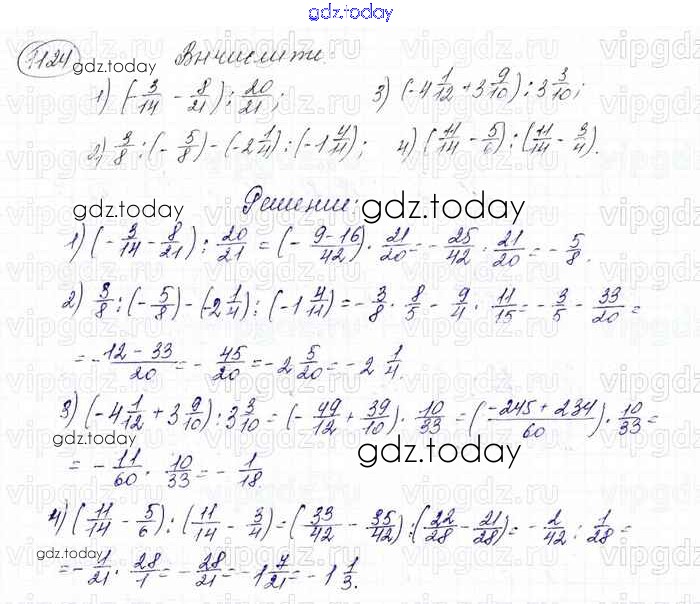 gdz.today
1124 gdz.today Вычислить:
1) (-3/14 - 8/21) : 20/21; 3) (-4 1/12 + 3 9/10) : 3 3/10;
2) 3/8 : (-5/8) - (-2 1/4) : (-1 4/11); 4) (11/14 - 5/6) : (11/14 - 3/4).
gdz.today Решение: gdz.today
1) (-3/14 - 8/21) : 20/21 = (-9-16/42) · 21/20 = -25/42 · 21/20 = -5/8.
2) 3/8 : (-5/8) - (-2 1/4) : (-1 4/11) = -3/8 · 8/5 - 9/4 · 11/15 = -3/5 - 33/20 =
= -12-33/20 = -45/20 = -2 5/20 = -2 1/4.
3) (-4 1/12 + 3 9/10) : 3 3/10 = (-49/12 + 39/10) · 10/33 = (-245+234/60) · 10/33 =
gdz.today
= -11/60 · 10/33 = -1/18 gdz.today
4) (11/14 - 5/6) : (11/14 - 3/4) = (33/42 - 35/42) : (22/28 - 21/28) = -2/42 : 1/28 =
gdz.today
= -1/21 · 28/1 = -28/21 = -1 7/21 = -1 1/3.